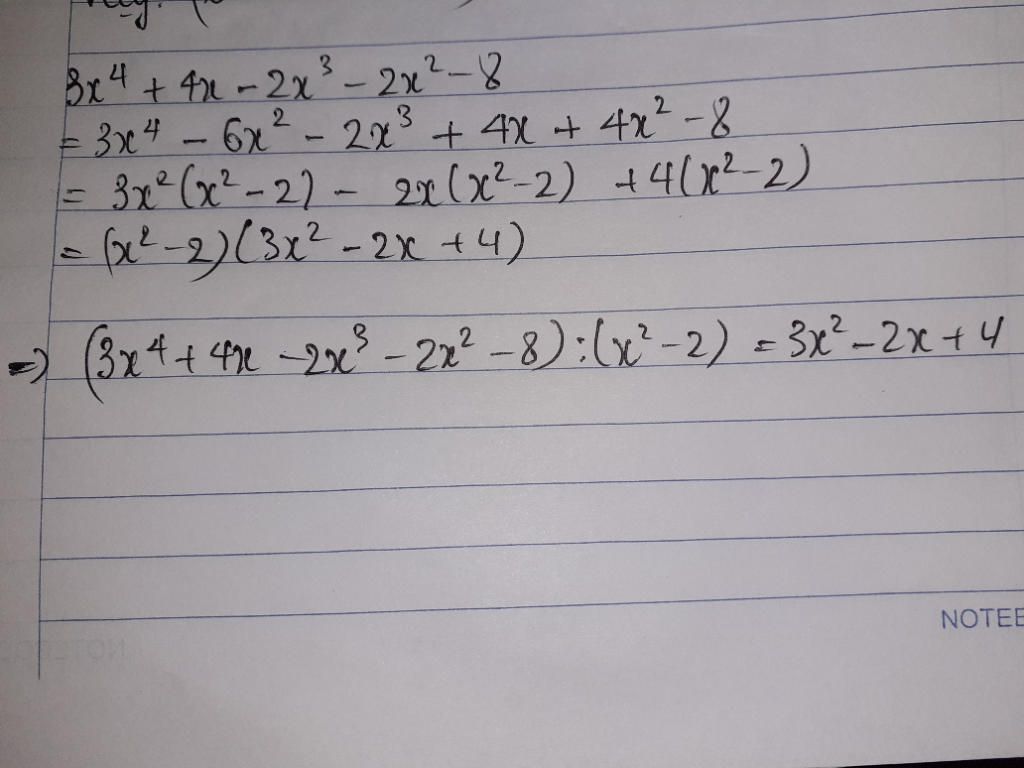 3x⁴ + 4x - 2x³ - 2x² - 8
= 3x⁴ - 6x² - 2x³ + 4x + 4x² - 8
= 3x²(x² - 2) - 2x(x² - 2) + 4(x² - 2)
= (x² - 2)(3x² - 2x + 4)
=) (3x⁴ + 4x - 2x³ - 2x² - 8) : (x² - 2) = 3x² - 2x + 4